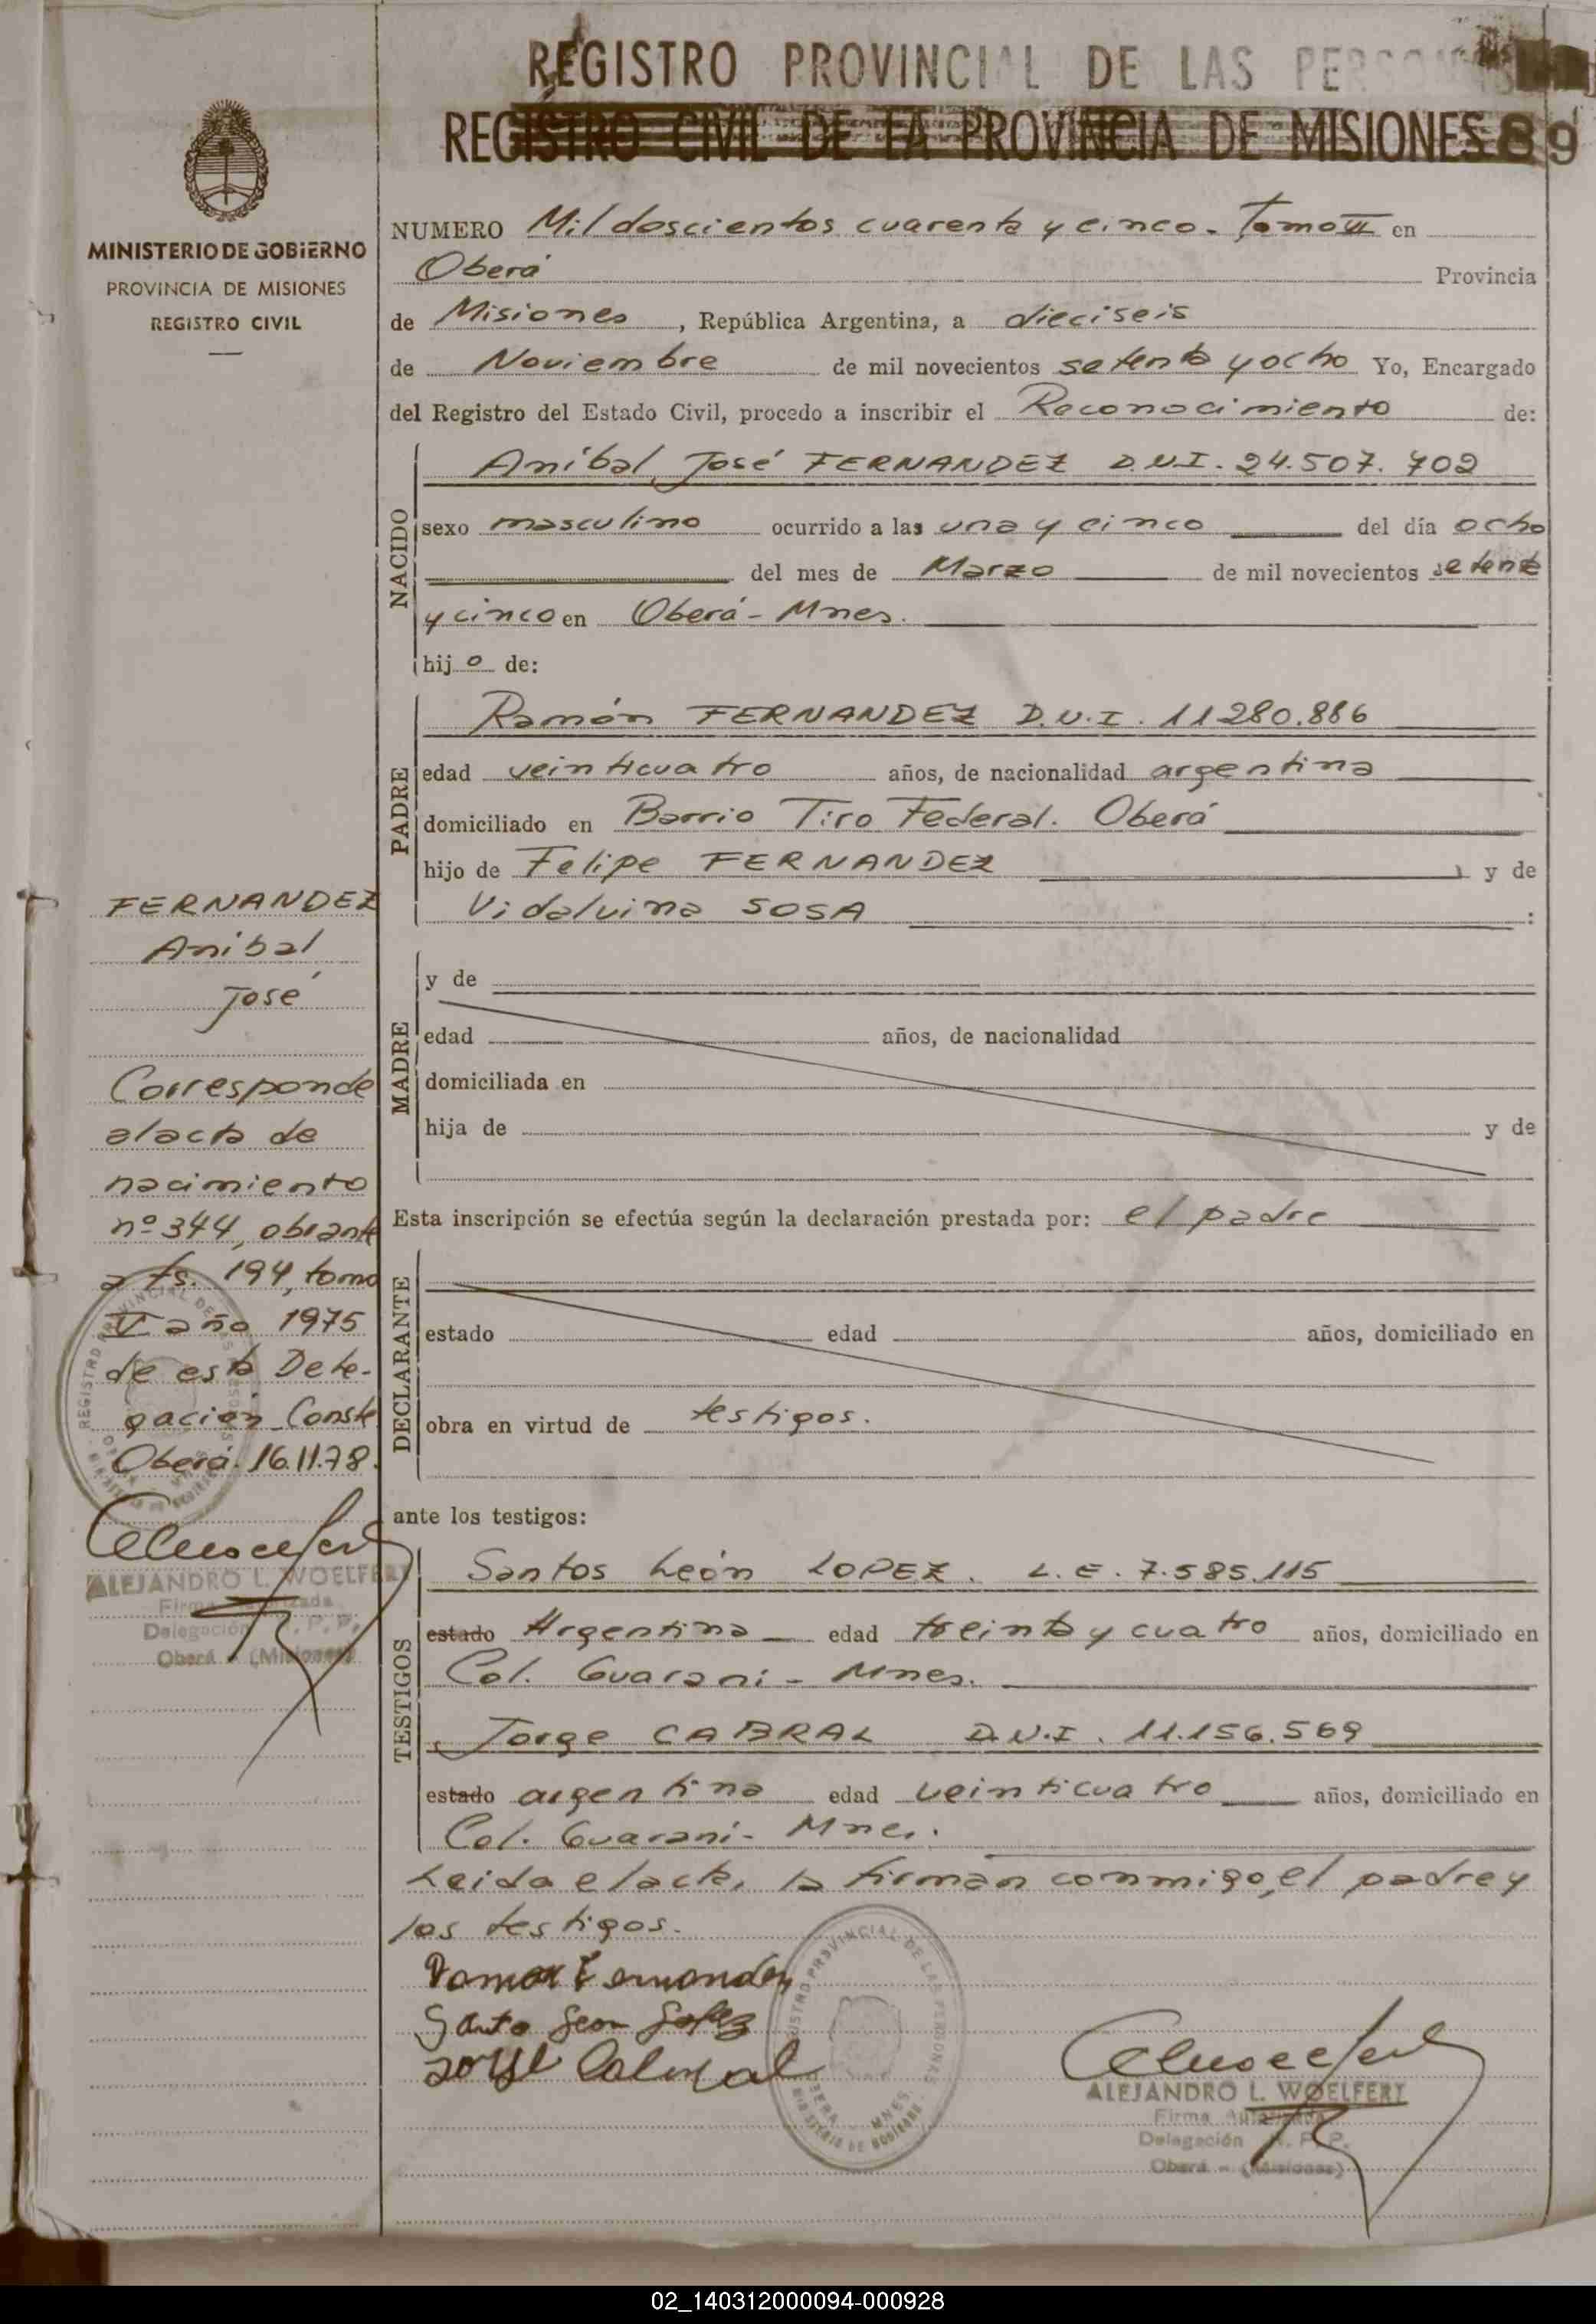 REGISTRO PROVINCIAL DE LAS PERSONAS
REGISTRO CIVIL DE LA PROVINCIA DE MISIONES 89
MINISTERIO DE GOBIERNO
PROVINCIA DE MISIONES
REGISTRO CIVIL
NUMERO Mil doscientos cuarenta y cinco. Tomo VII en
Oberá Provincia
de Misiones, República Argentina, a dieciseis
de Noviembre de mil novecientos setenta y ocho Yo, Encargado
del Registro del Estado Civil, procedo a inscribir el Reconocimiento de:
NACIDO
Aníbal José FERNANDEZ D.N.I. 24.507.702
sexo masculino ocurrido a las una y cinco del día ocho
del mes de Marzo de mil novecientos setenta
y cinco en Oberá - Mnes.
hijo de:
PADRE
Ramón FERNANDEZ D.N.I. 11280.886
edad veinticuatro años, de nacionalidad argentina
domiciliado en Barrio Tiro Federal. Oberá
hijo de Felipe FERNANDEZ y de
Vidalvina SOSA :
MADRE
y de
edad años, de nacionalidad
domiciliada en
hija de y de
Esta inscripción se efectúa según la declaración prestada por: el padre
DECLARANTE
estado edad años, domiciliado en
obra en virtud de testigos.
ante los testigos:
TESTIGOS
Santos León LOPEZ. L.E. 7.585.115
estado Argentina edad treinta y cuatro años, domiciliado en
Col. Guaraní - Mnes.
Jorge CABRAL D.N.I. 11.156.569
estado argentina edad veinticuatro años, domiciliado en
Col. Guaraní - Mnes.
Leida el acta, la firman conmigo, el padre y
los testigos.
Ramon Fernandez
Santo Leon Lopez
Jorge Cabral
REGISTRO PROVINCIAL DE LAS PERSONAS
OBERA MNES.
MINISTERIO DE GOBIERNO
ALEJANDRO L. WOELFERT
Firma Autorizada
Delegación R. P. P.
Oberá - (Misiones)
FERNANDEZ
Anibal
José
Corresponde
al acta de
nacimiento
nº 344, obrante
a fs. 194, tomo
V año 1975
de esta Dele-
gación. Conste
Oberá. 16.11.78.
ALEJANDRO L. WOELFERT
Firma Autorizada
Delegación R. P. P.
Oberá - (Misiones)
02_140312000094-000928